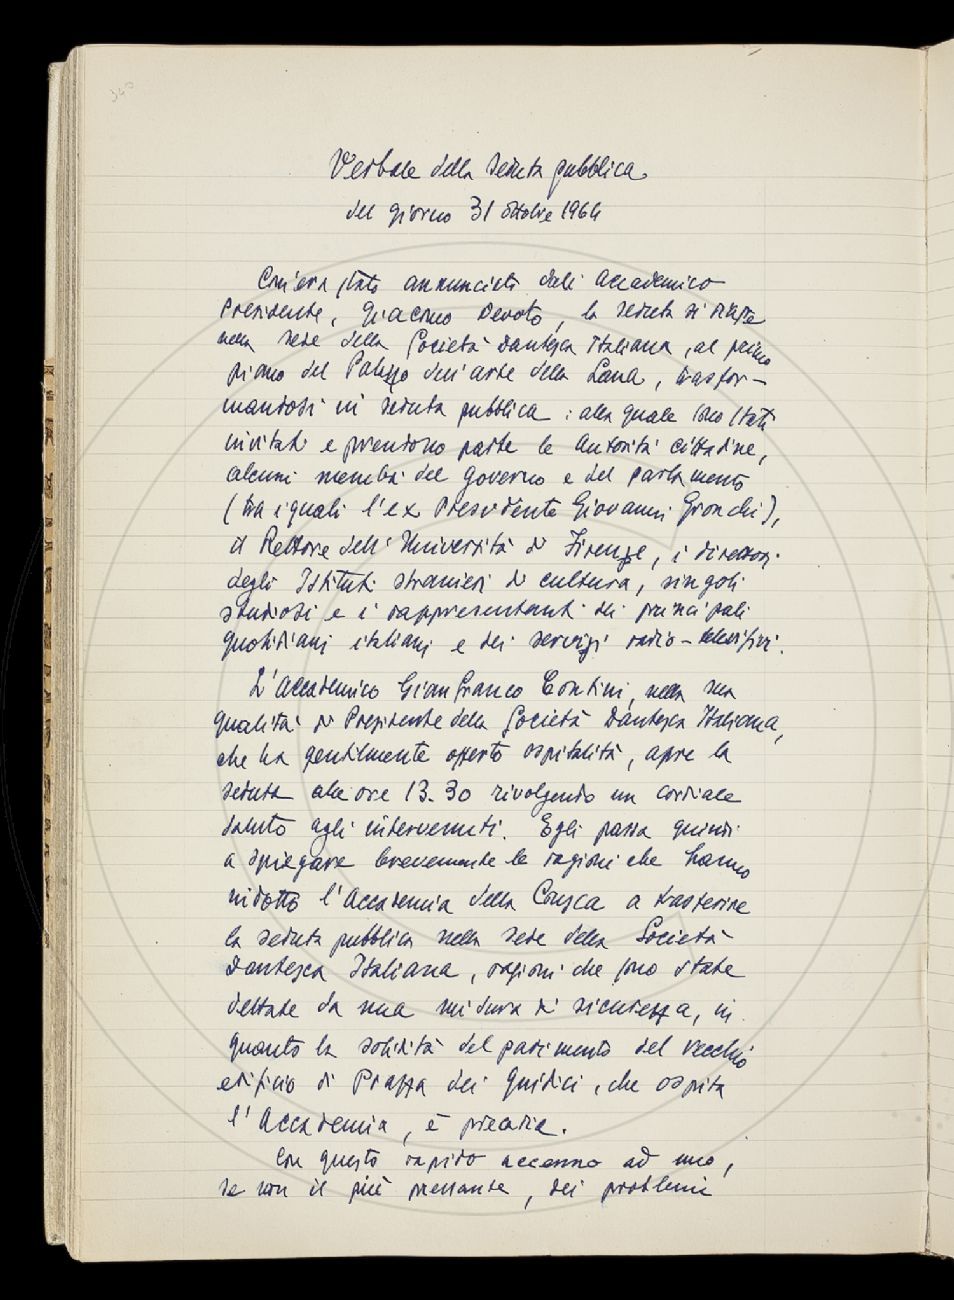 Verbale della seduta pubblica
del giorno 31 ottobre 1964
Com'era stato annunciato dall'Accademico
Presidente, Giacomo Devoto, la seduta si svolge
nella sede della Società Dantesca Italiana, al primo
piano del Palazzo dell'arte della Lana, trasfor-
mandosi in seduta pubblica: alla quale sono stati
invitati e prendono parte le Autorità cittadine,
alcuni membri del governo e del parlamento
(tra i quali l'ex Presidente Giovanni Gronchi),
il Rettore dell'Università di Firenze, i direttori
degli Istituti stranieri di cultura, singoli
studiosi e i rappresentanti dei principali
quotidiani italiani e dei servizi radio-televisivi.
L'Accademico Gianfranco Contini, nella sua
qualità di Presidente della Società Dantesca Italiana,
che ha gentilmente offerto ospitalità, apre la
seduta alle ore 13.30 rivolgendo un cordiale
saluto agli intervenuti. Egli passa quindi
a spiegare brevemente le ragioni che hanno
indotto l'Accademia della Crusca a trasferire
la seduta pubblica nella sede della Società
Dantesca Italiana, ragioni che sono state
dettate da una misura di sicurezza, in
quanto la solidità del pavimento del vecchio
edificio di Piazza dei Giudici, che ospita
l'Accademia, è precaria.
Con questo rapido accenno ad uno,
se non il più pressante, dei problemi